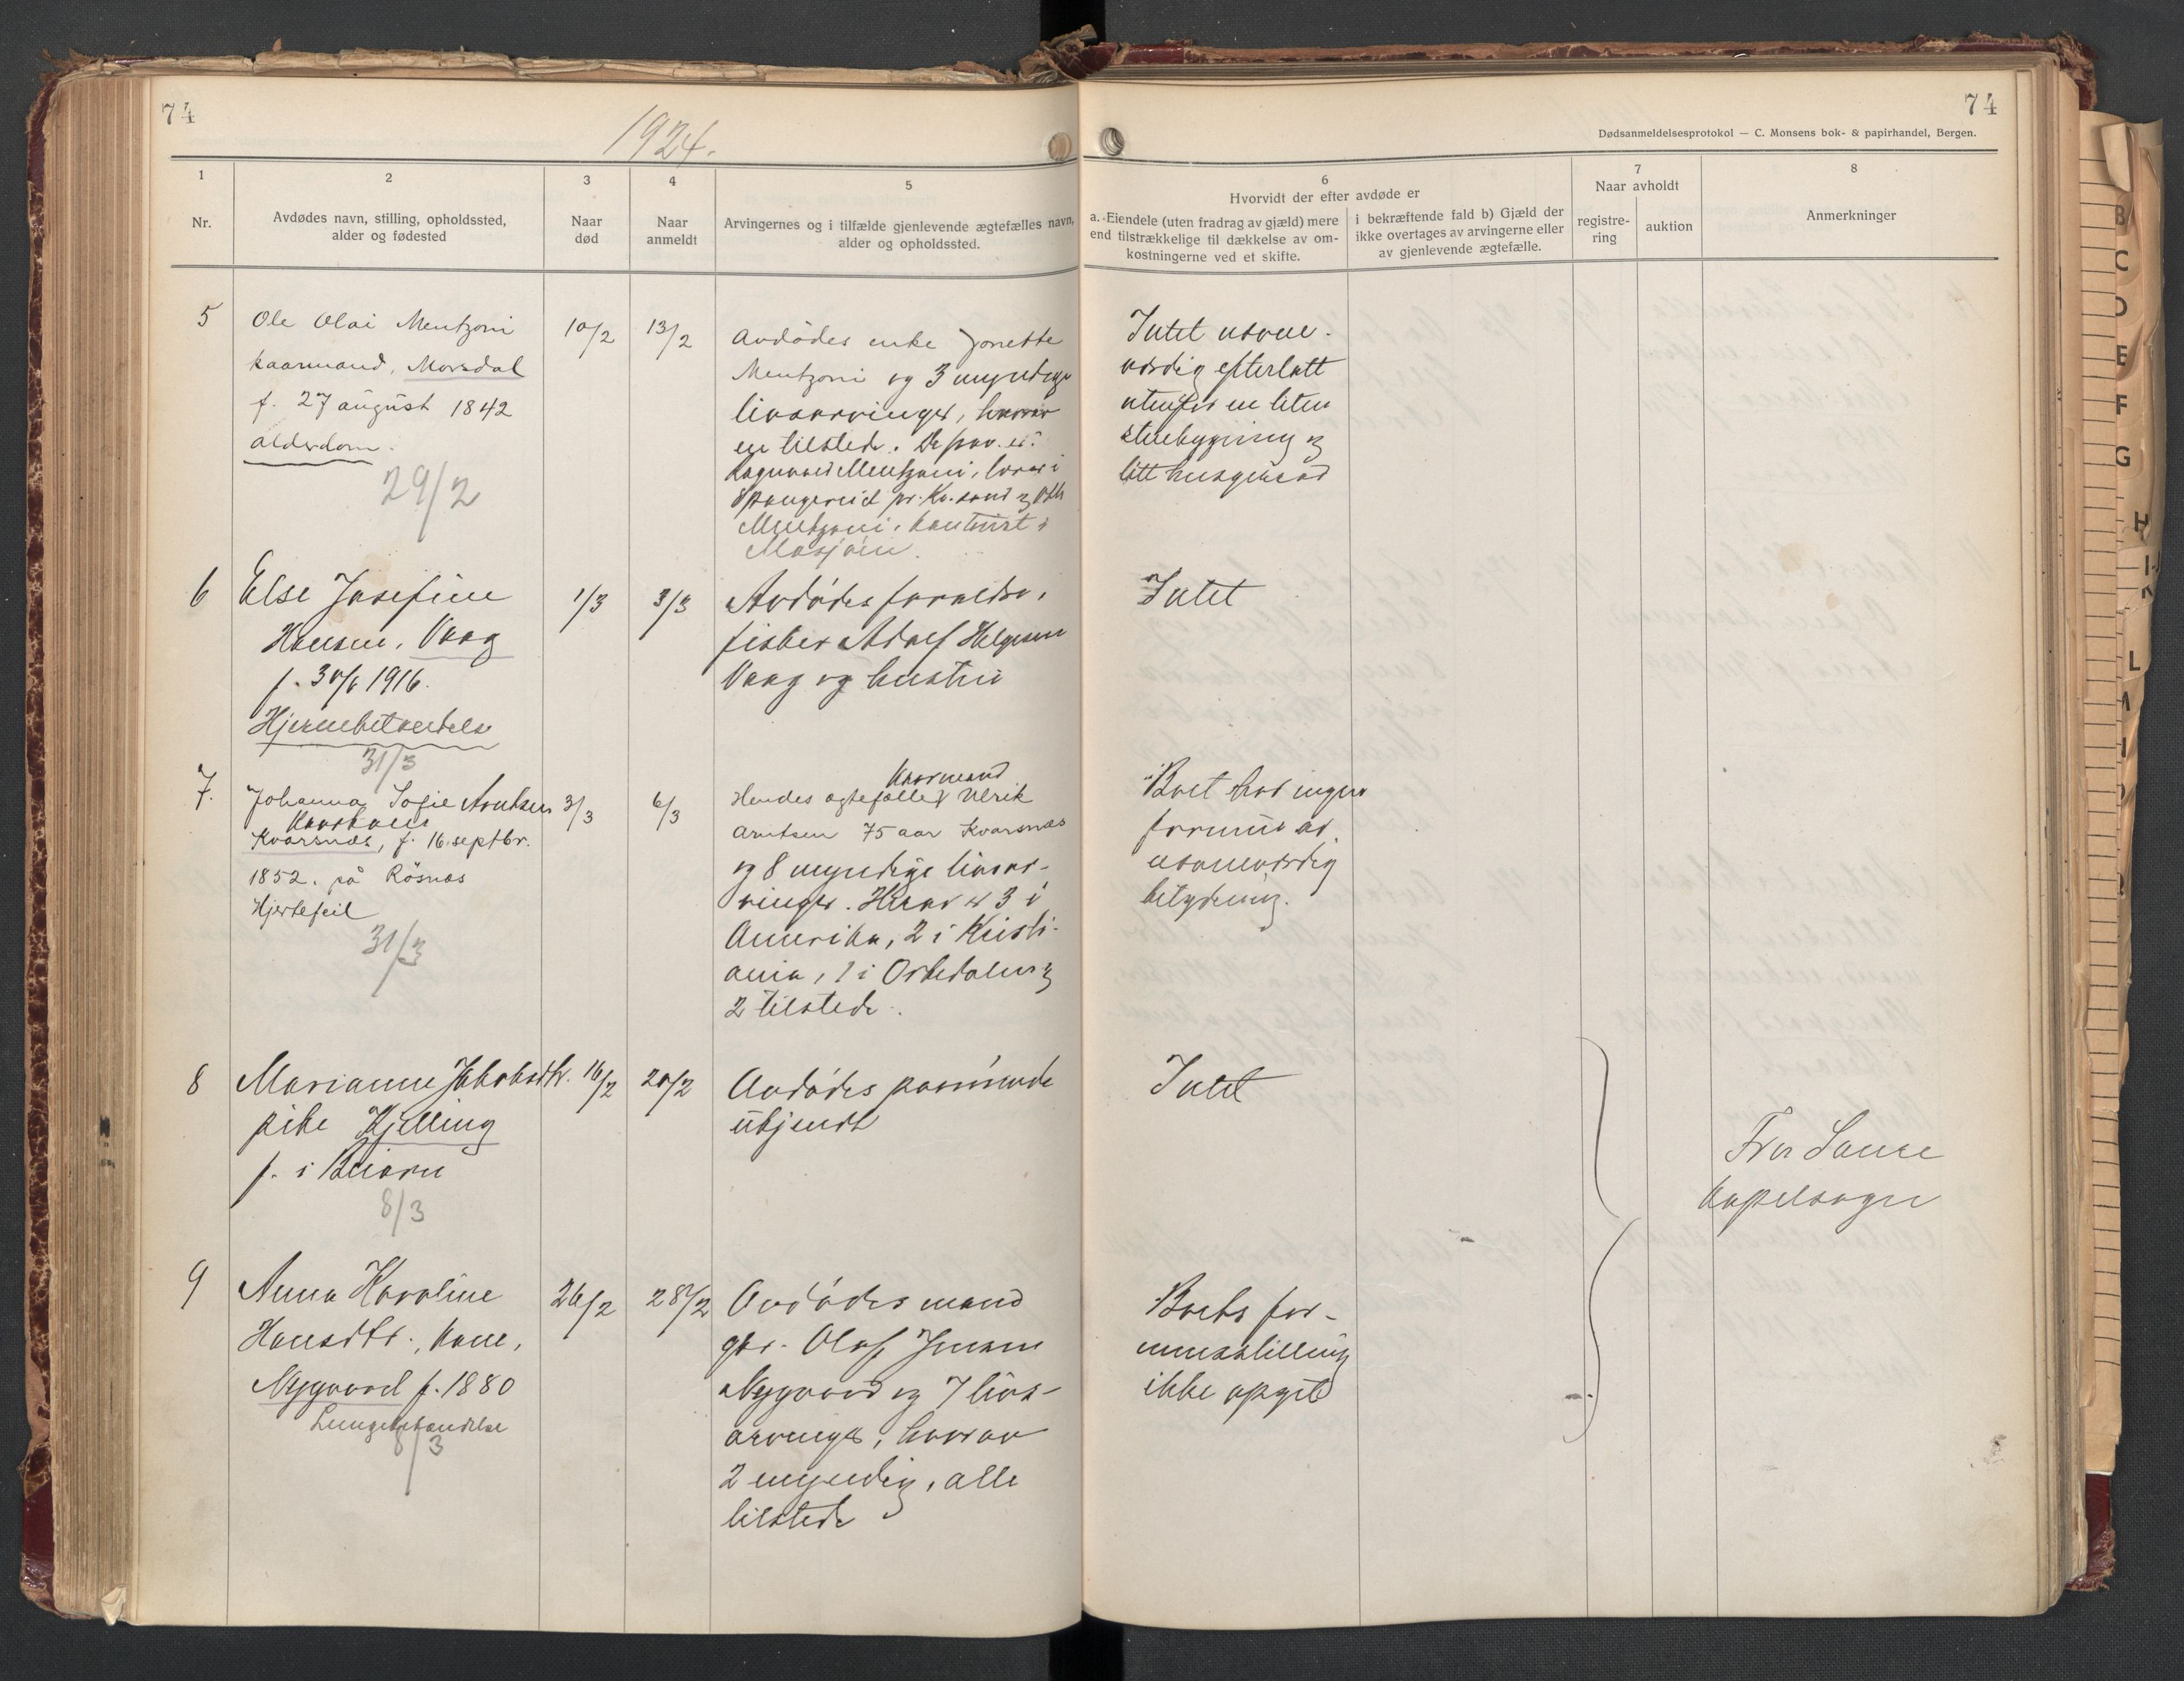 74
1924.
1
Nr.
2
Avdødes navn, stilling, opholdssted,
alder og fødested
3
Naar
død
4
Naar
anmeldt
5
Arvingernes og i tilfælde gjenlevende ægtefælles navn,
alder og opholdssted.
5
Ole Olai Mentzoni
kaarmand, Morsdal
f. 27 august 1842
alderdom.
29/2
10/2
13/2
Avdødes enke Jonette
Mentzoni og 3 myndige
livsarvinger, hvorav
en tilstede. De frav. er:
Ragnvald Mentzoni, lærer i
Spangereid pr. Kr.sand og
Mentzoni, kontorist i
Mosjøen.
6
Else Josefine
Hansen, Vaag
f. 30/6 1916.
Hjernebetændelse
31/3
1/3
3/3
Avdødes forældre,
fisker Adolf Helgesen
Vaag og hustru
7.
Johanna Sofie Arntsen
Kaarkone
Kvarsnæs, f. 16. septbr.
1852. på Røsnæs
Hjertefeil
31/3
3/3
6/3
Kaarmand
Hendes ægtefælle Ulrik
Arntsen 75 aar Kvarsnæs
og 8 myndige livsar-
vinger. Herav er 3 i
Amerika, 2 i Kristi-
ania, 1 i Orkedalen og
2 tilstede.
8
Marianne Jakobsdtr.
pike Kjelling
f. i Beiarn
8/3
16/2
20/2
Avdødes paarørende
ukjendt
9
Anna Karoline
Hansdtr., kone,
Nygaard f. 1880
Lungebetændelse
8/3
26/2
28/2
Avdødes mand
gbr. Olaf Jensen
Nygaard og 7 livs-
arvinger, hvorav
2 myndig, alle
tilstede
74
Dødsanmeldelsesprotokol — C. Monsens bok- & papirhandel, Bergen.
6
Hvorvidt der efter avdøde er
a. Eiendele (uten fradrag av gjæld) mere
end tilstrækkelige til dækkelse av om-
kostningerne ved et skifte.
i bekræftende fald b) Gjæld der
ikke overtages av arvingerne eller
av gjenlevende ægtefælle.
7
Naar avholdt
registre-
ring
auktion
8
Anmerkninger
Intet nævne-
værdig efterlatt
utenfor en liten
stuebygning og
litt husgeraad
Intet
Boet har ingen
formue av
nævneværdig
betydning.
Intet
Fra Saura
kapelsogn
Boets for-
muesstilling
ikke opgit
B
C
D
E
F
G
H
I-J
K
L
M